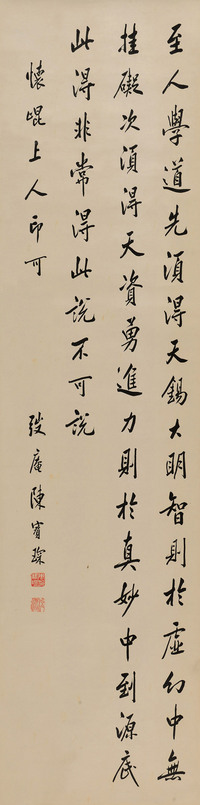 至人學道先須得天錫大明智則於虛幻中無
挂礙次須得天資勇進力則於真妙中到源底
此得非常得此說不可說
懷崐上人印可
弢庵陳寶琛